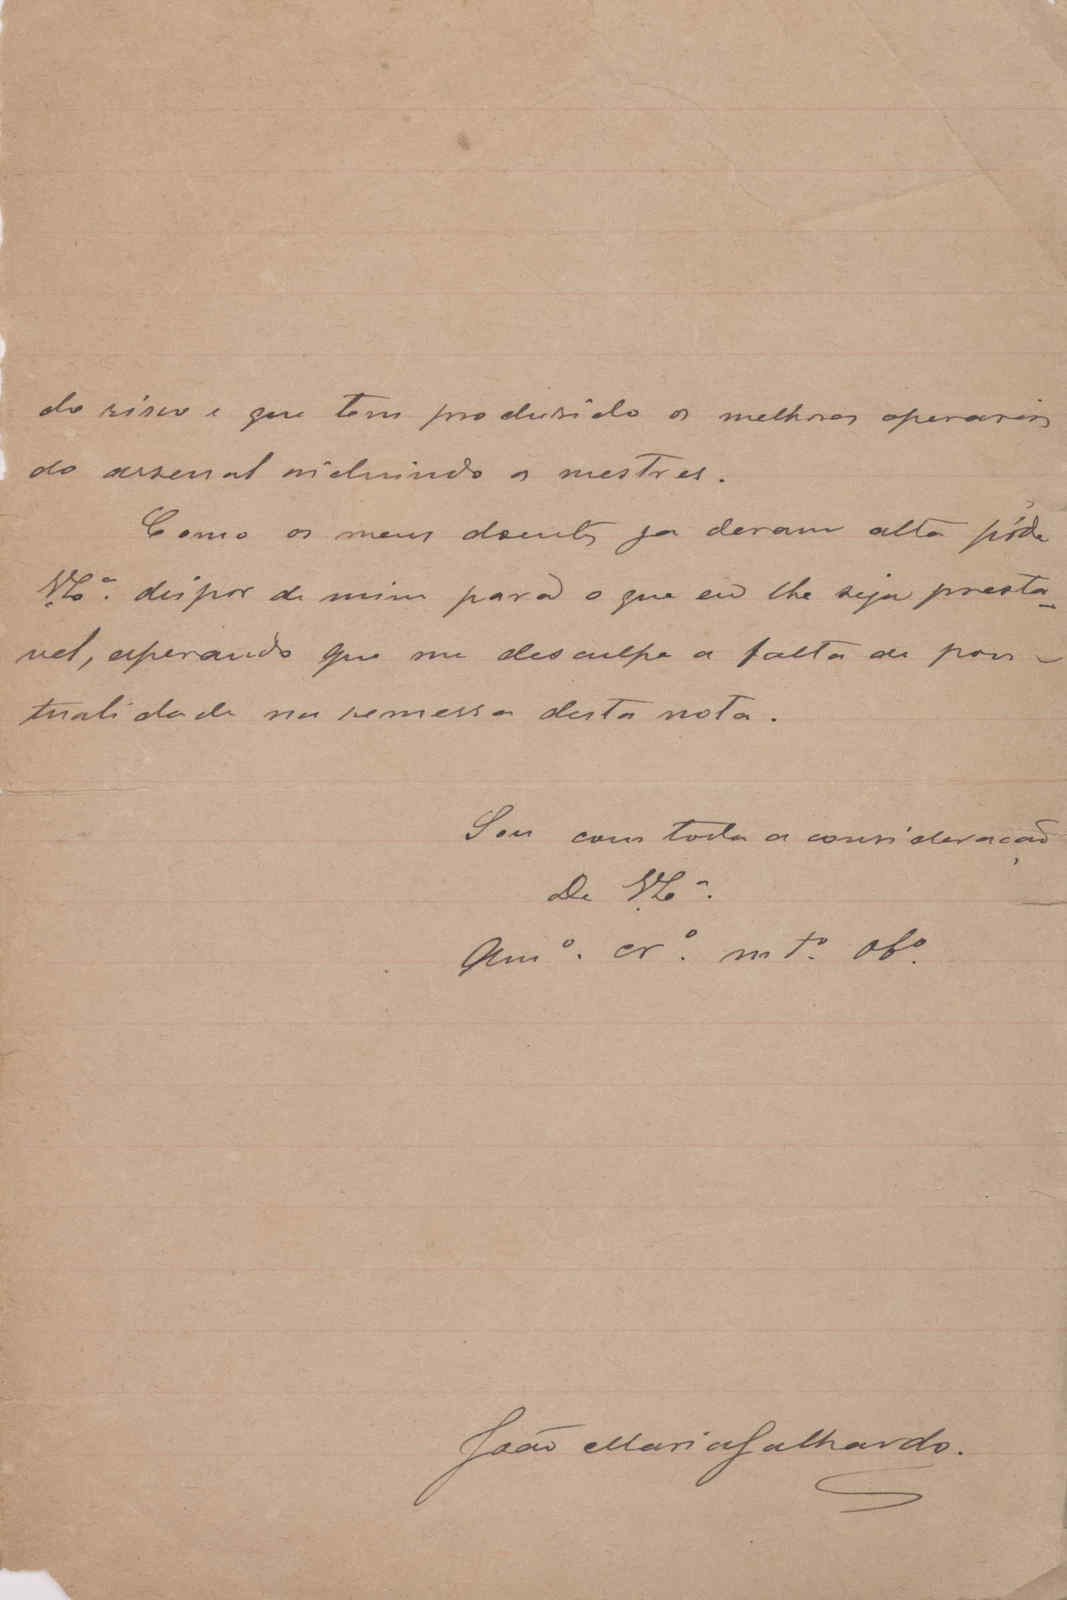 do risco e que tem produsido os melhores operarios
do arsenal incluindo os mestres.
Como os meus doentes ja deram alta póde
V. Ex.ª dispor de mim para o que eu lhe seja presta-
vel, esperando que me desculpe a falta de pon-
tualidade na remessa desta nota.
Sou com toda a consideração
De V. Ex.ª
Am.º cr.º mt.º ob.º
João Maria Galhardo.